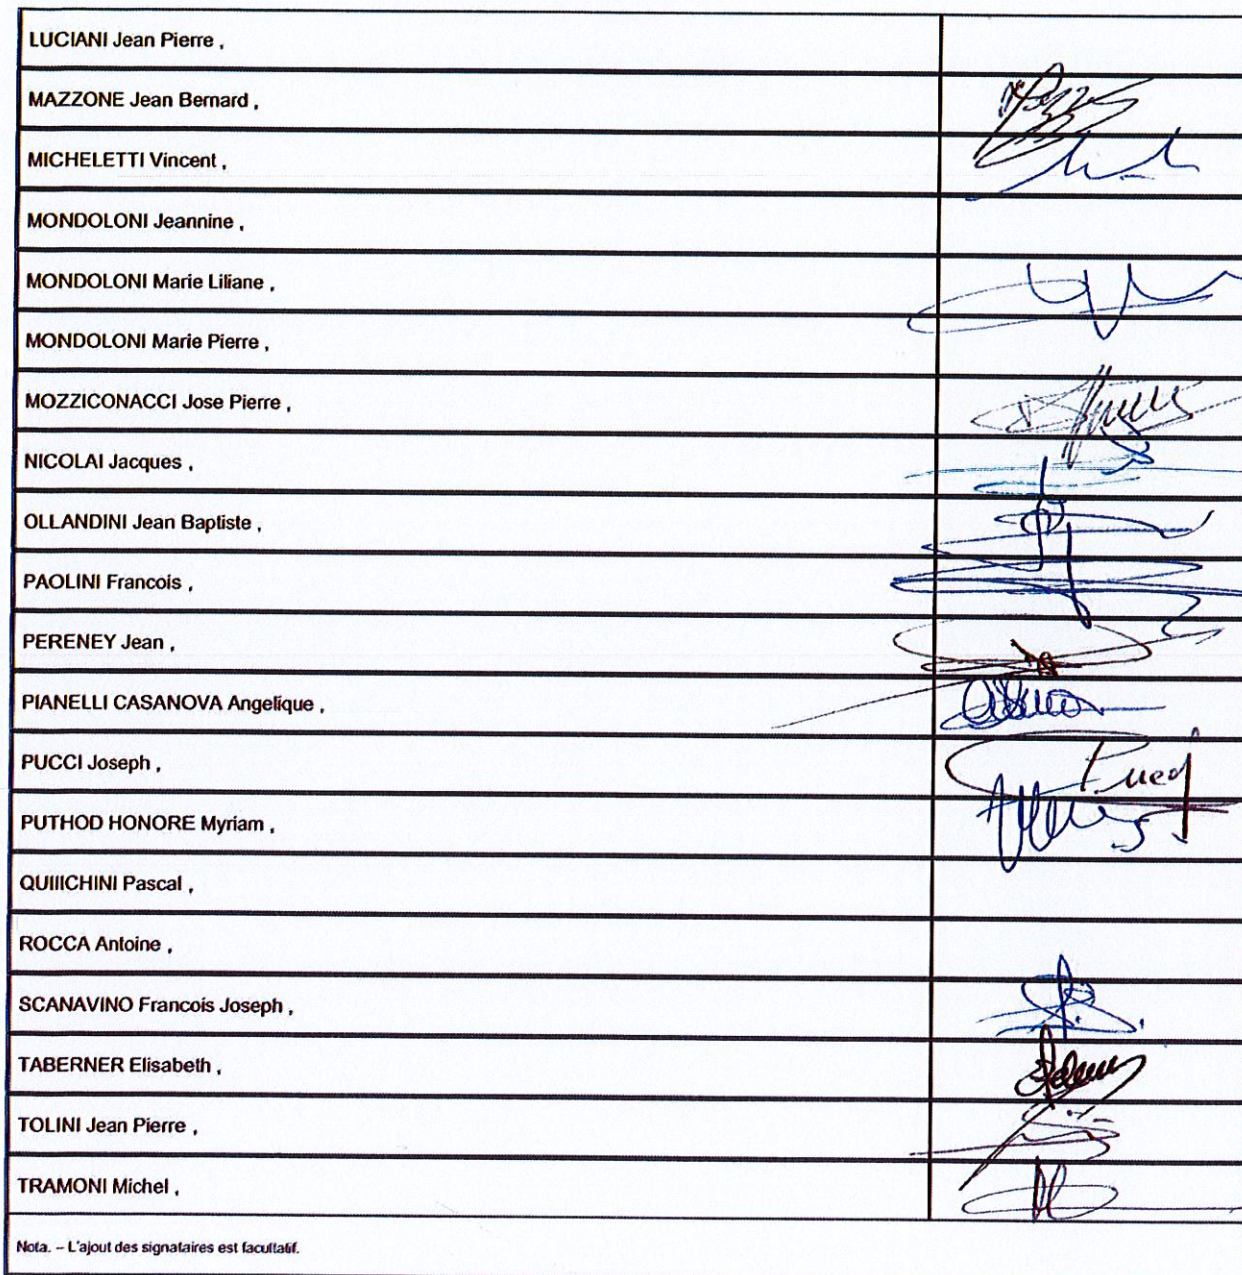 LUCIANI Jean Pierre ,
MAZZONE Jean Bernard ,
MICHELETTI Vincent ,
MONDOLONI Jeannine ,
MONDOLONI Marie Liliane ,
MONDOLONI Marie Pierre ,
MOZZICONACCI Jose Pierre ,
NICOLAI Jacques ,
OLLANDINI Jean Baptiste ,
PAOLINI Francois ,
PERENEY Jean ,
PIANELLI CASANOVA Angelique ,
PUCCI Joseph ,
PUTHOD HONORE Myriam ,
QUIIICHINI Pascal ,
ROCCA Antoine ,
SCANAVINO Francois Joseph ,
TABERNER Elisabeth ,
TOLINI Jean Pierre ,
TRAMONI Michel ,
Nota. – L'ajout des signataires est facultatif.